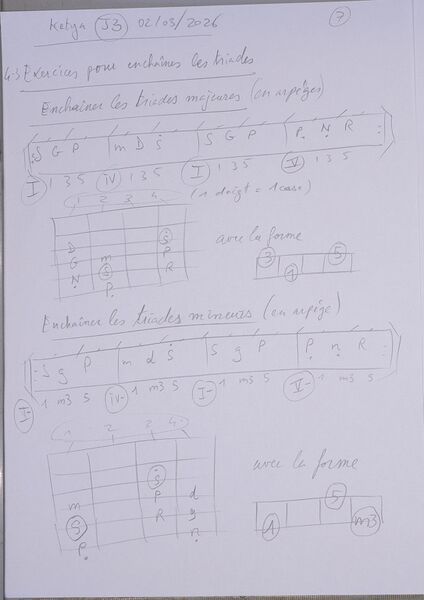 Ketya J3 02/03/2026 7
4-3 Exercices pour enchaîner les triades
Enchaîner les triades majeures (en arpèges)
S G P m D Ṡ S G P P. N. R
I 1 3 5 IV 1 3 5 I 1 3 5 V 1 3 5
1 2 3 4 (1 doigt = 1 case)
avec la forme
D Ṡ
G m P
N. S R
P.
3 5
1
Enchaîner les triades mineures (en arpège)
S g P m d Ṡ S g P P. n. R
I- 1 m3 5 IV- 1 m3 5 I- 1 m3 5 V- 1 m3 5
1 2 3 4
avec la forme
Ṡ
m P d
S R g
P. n.
5
1 m3